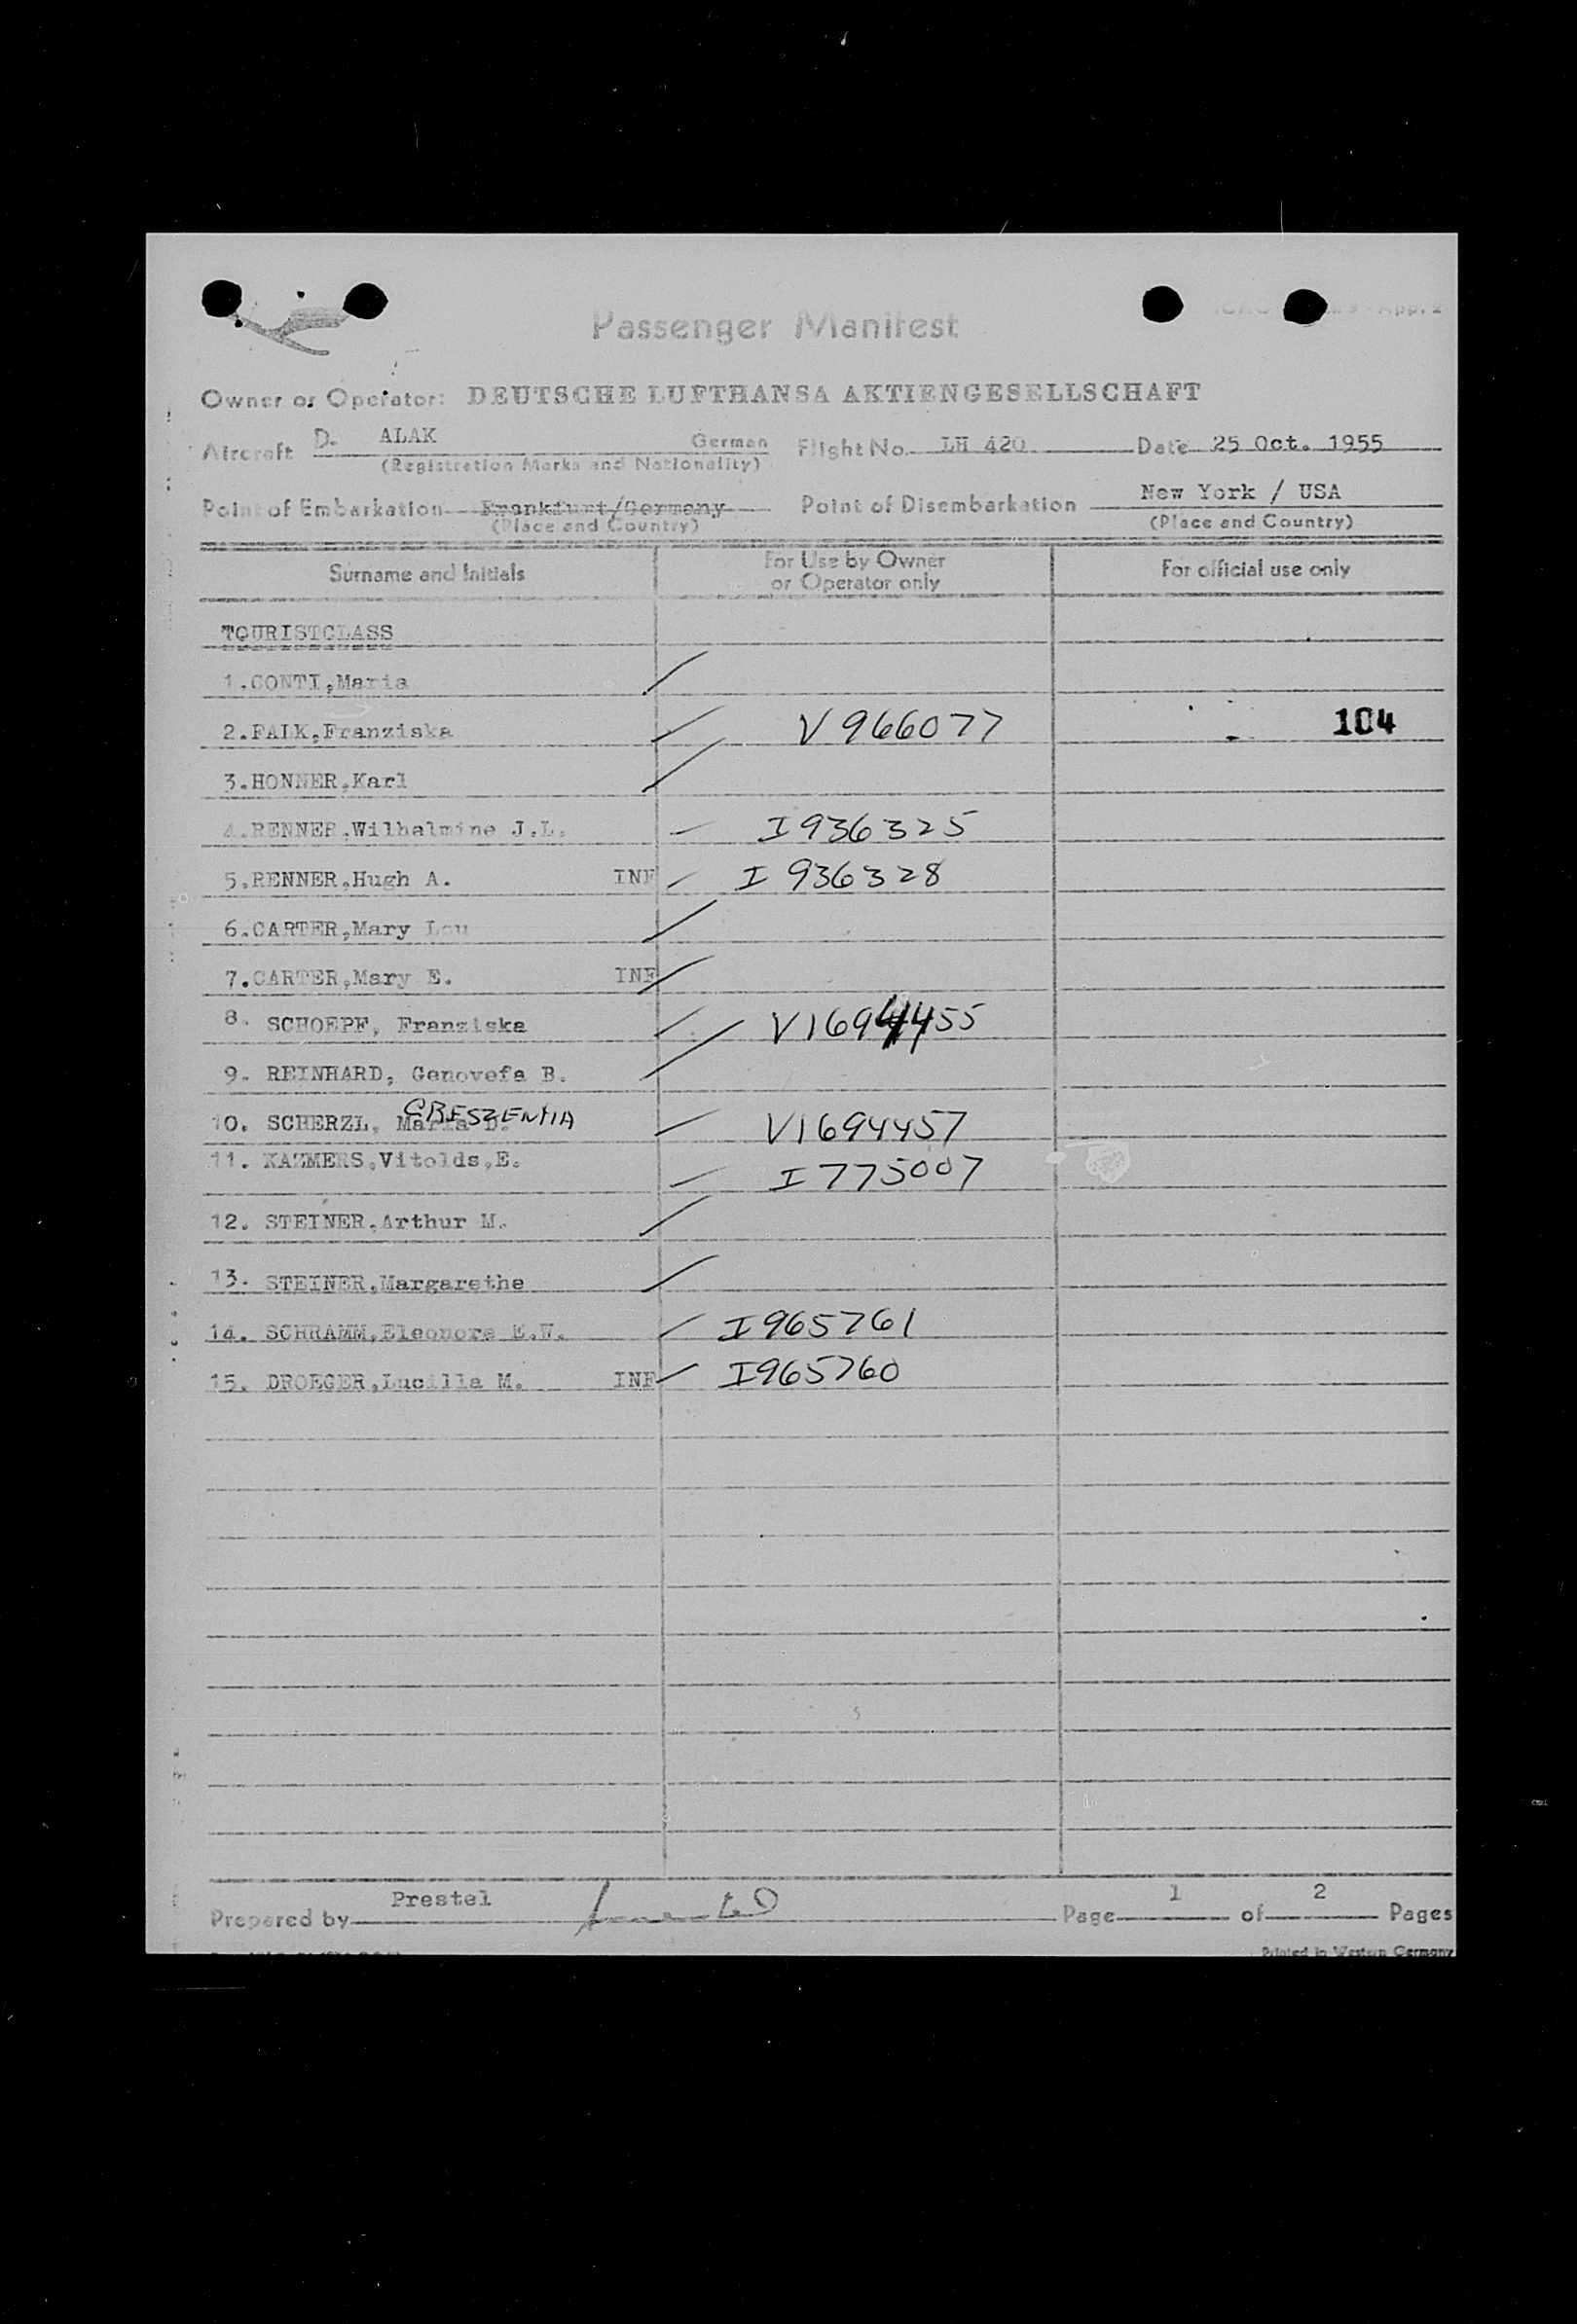 Passenger Manifest
App. 2
Owner or Operator: DEUTSCHE LUFTHANSA AKTIENGESELLSCHAFT
Aircraft D- ALAK German Flight No. LH 420 Date 25 Oct. 1955
(Registration Marks and Nationality)
Point of Embarkation Frankfurt/Germany Point of Disembarkation New York / USA
(Place and Country) (Place and Country)
Surname and Initials For Use by Owner or Operator only For official use only
TOURISTCLASS
1.CONTI,Maria
2.FALK,Franziska V 966077 104
3.HONNER,Karl
4.RENNER,Wilhelmine J.L. I936325
5.RENNER,Hugh A. INF I 936328
6.CARTER,Mary Lou
7.CARTER,Mary E. INF
8. SCHOEPF, Franziska V1694455
9. REINHARD, Genovefa B.
CRESZENTIA
10. SCHERZL, Maria D. V1694457
11. KAZMERS,Vitolds,E. I775007
12. STEINER,Arthur M.
13. STEINER,Margarethe
14. SCHRAMM,Eleonora E.W. I965761
15. DROEGER,Lucilla M. INF I965760
Prepared by Prestel Page 1 of 2 Pages
Printed in Western Germany